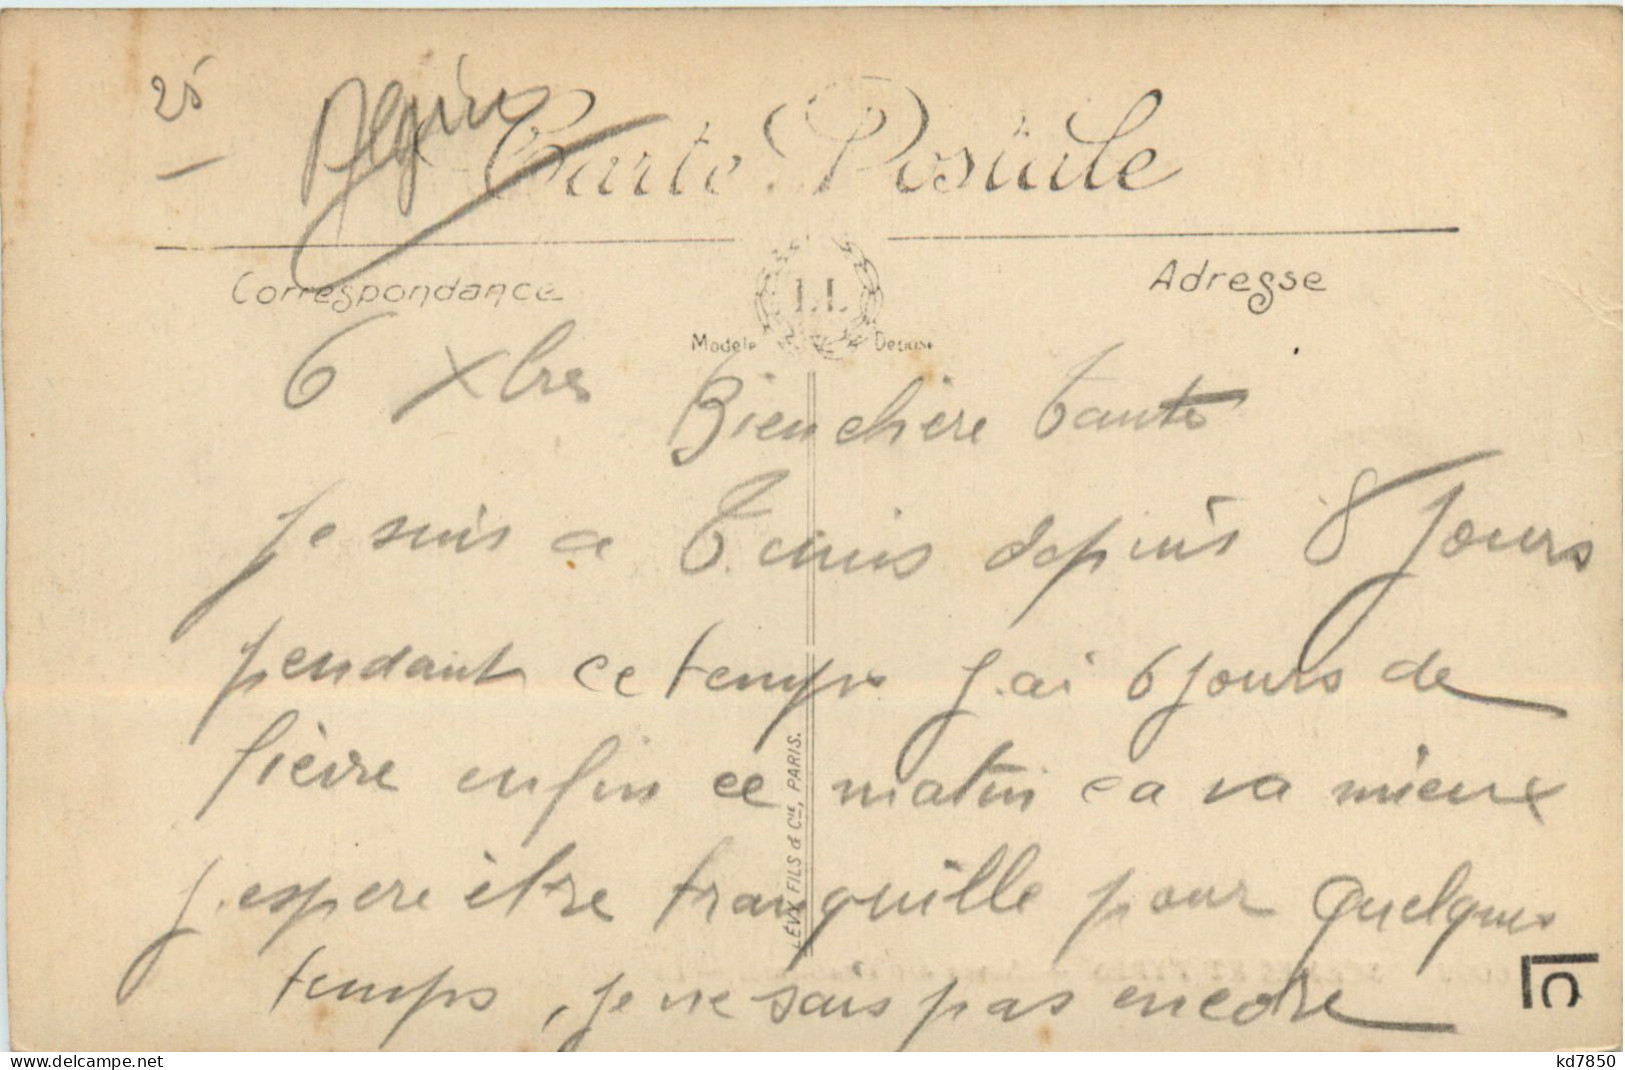 25
Algérie
Carte Postale
Correspondance
LL
Adresse
Modèle Déposé
6 Xbre
Bien chère Tante
je suis a Tunis depuis 8 Jours
pendant ce temps j'ai 6 jours de
fièvre enfin ce matin ca va mieux
j'espere être tranquille pour quelques
temps, je ne sais pas encore
LÉVY FILS & Cie, PARIS.
LC
delcampe.net
kd7850